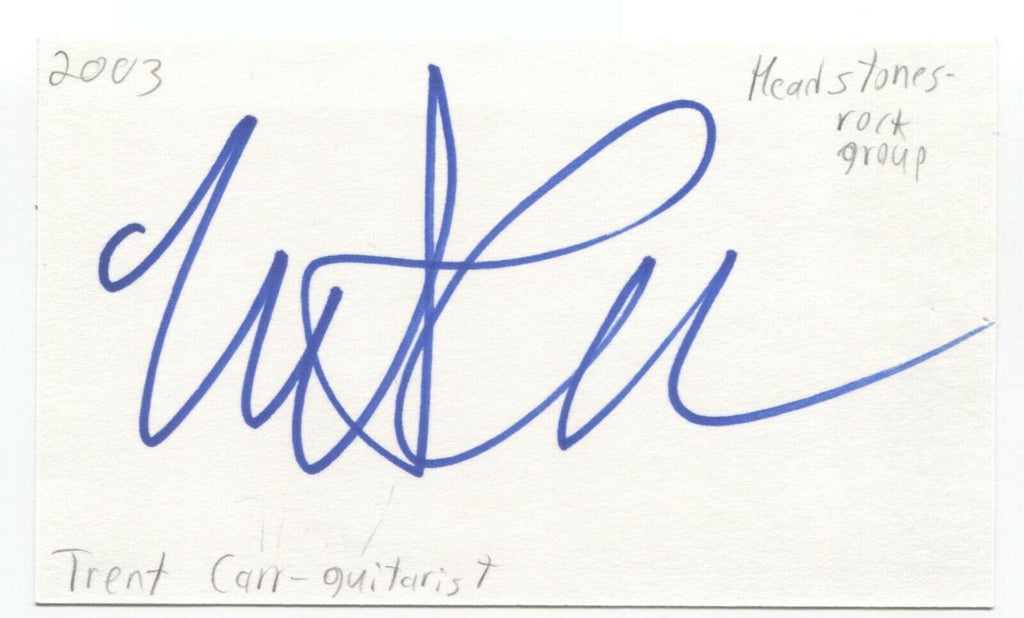 2003
Headstones-
rock
group
Trent Carr-guitarist